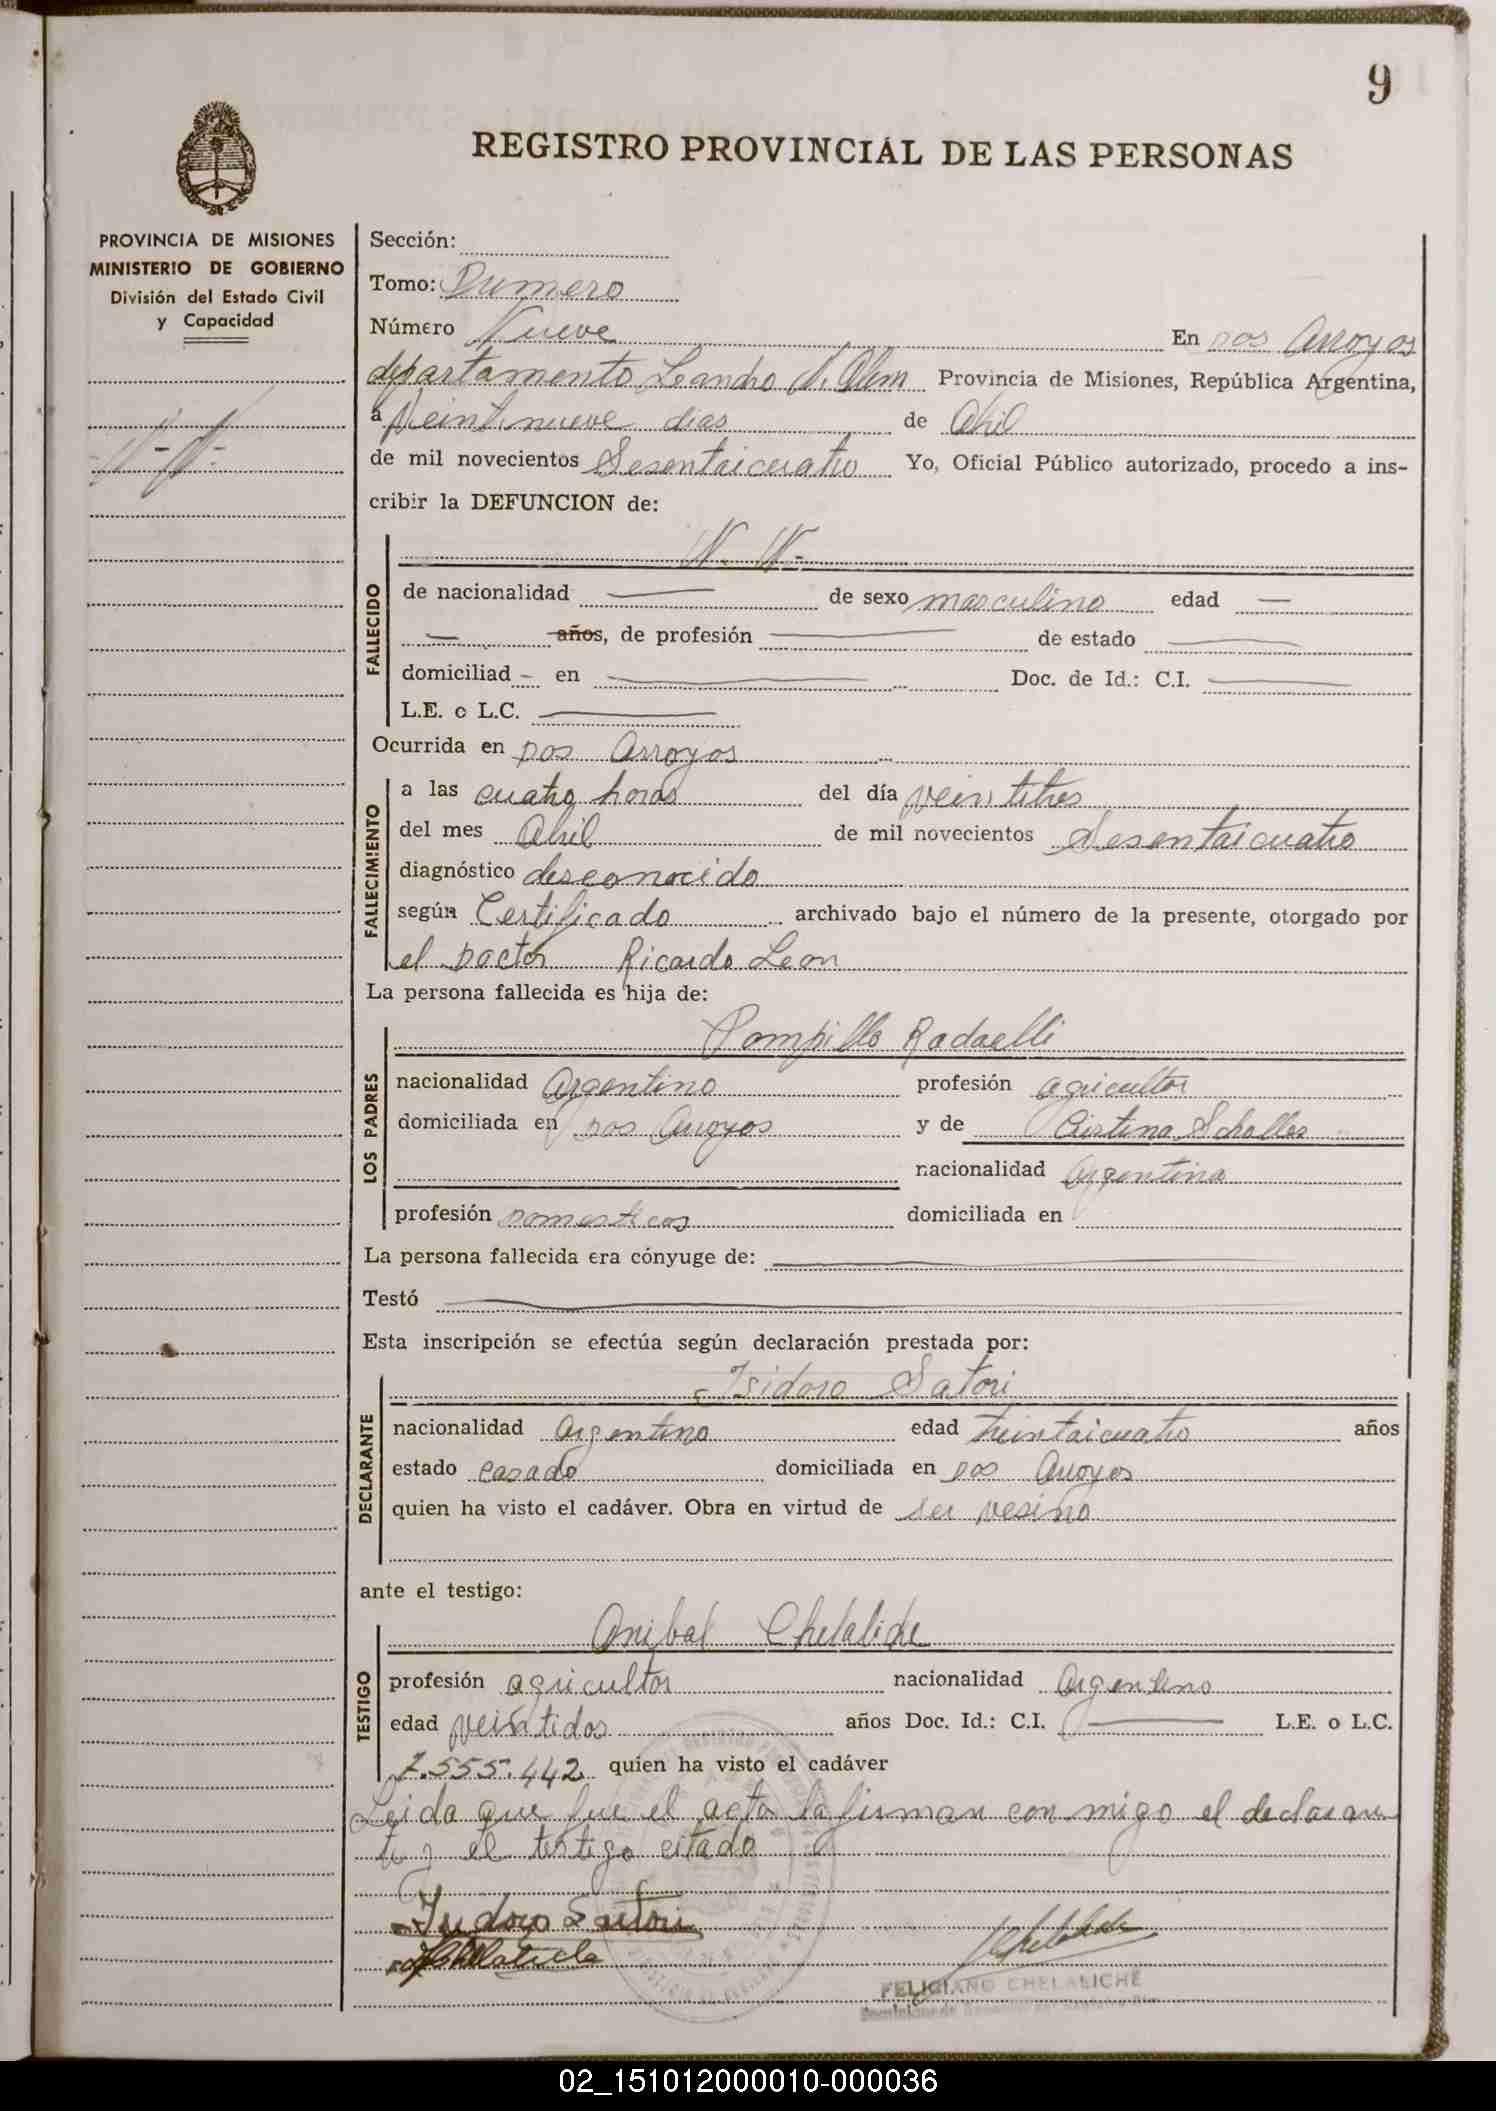 9
REGISTRO PROVINCIAL DE LAS PERSONAS
PROVINCIA DE MISIONES
MINISTERIO DE GOBIERNO
División del Estado Civil
y Capacidad
N-N-
Sección:
Tomo: Dumero
Número Nueve En Dos Arroyos
departamento Leandro N. Alem Provincia de Misiones, República Argentina,
a Veintinueve dias de Abril
de mil novecientos Sesentaicuatro Yo, Oficial Público autorizado, procedo a ins-
cribir la DEFUNCION de:
N. N-
FALLECIDO
de nacionalidad — de sexo masculino edad —
— años, de profesión — de estado —
domiciliad - en — Doc. de Id.: C.I. —
L.E. o L.C. —
Ocurrida en Dos Arroyos
FALLECIMIENTO
a las cuatro horas del día veintitres
del mes Abril de mil novecientos Sesentaicuatro
diagnóstico desconocido
según Certificado archivado bajo el número de la presente, otorgado por
el Doctor Ricardo Leon
La persona fallecida es hija de:
LOS PADRES
Pompillo Radaelli
nacionalidad Argentino profesión agricultor
domiciliada en Dos Arroyos y de Cristina Scholles
nacionalidad Argentina
profesión Domesticos domiciliada en
La persona fallecida era cónyuge de: —
Testó —
Esta inscripción se efectúa según declaración prestada por:
DECLARANTE
Isidoro Satori
nacionalidad Argentino edad treintaicuatro años
estado casado domiciliada en Dos Arroyos
quien ha visto el cadáver. Obra en virtud de ser vesino
ante el testigo:
TESTIGO
Anibal Chelaliche
profesión agricultor nacionalidad Argentino
edad veintidos años Doc. Id.: C.I. — L.E. o L.C.
7.555.442 quien ha visto el cadáver
Leida que fue el acta la firman con migo el declaran
te y el testigo citado
Isidoro Satori
FELICIANO CHELALICHE
02_151012000010-000036